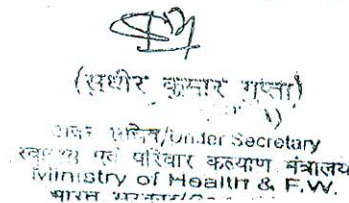 (सुधीर कुमार गुप्ता)
सचिव/Under Secretary
स्वास्थ्य एवं परिवार कल्याण मंत्रालय
Ministry of Health & F.W.
भारत सरकार/